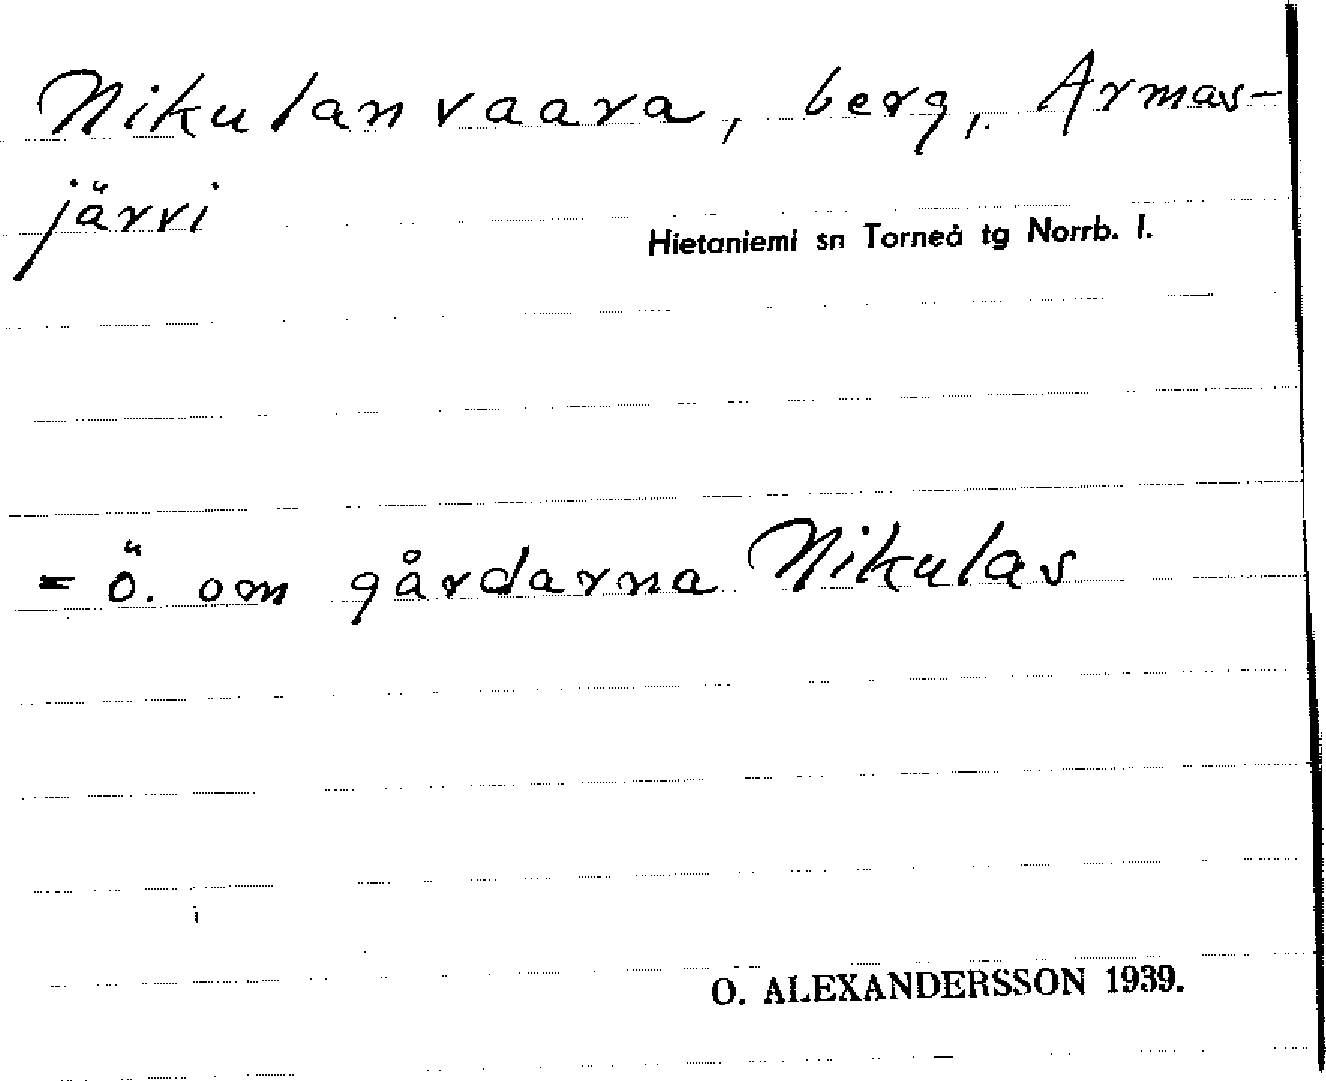 Nikulanvaara, berg, Armas-
järvi
Hietaniemi sn Torneå tg Norrb. l.
= Ö. om gårdarna Nikulas
O. ALEXANDERSSON 1939.